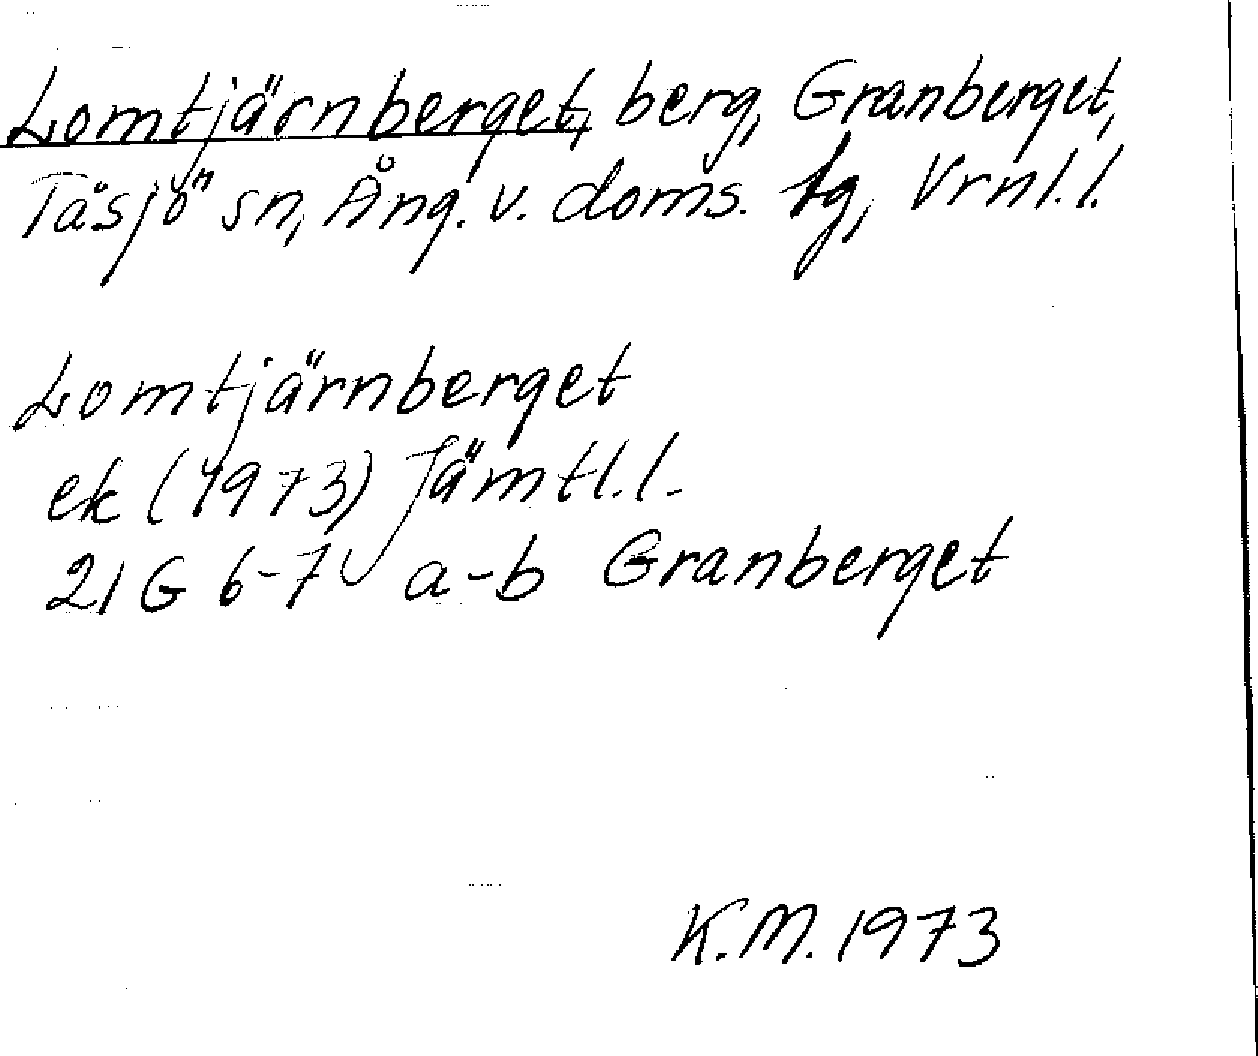 Lomtjärnberget, berg, Granberget,
Tåsjö sn, Ång. v. doms. lg, Vrnl.l.
Lomtjärnberget
ek (1973) Jämtl.l.
21 G 6-7 a-b Granberget
K.M. 1973